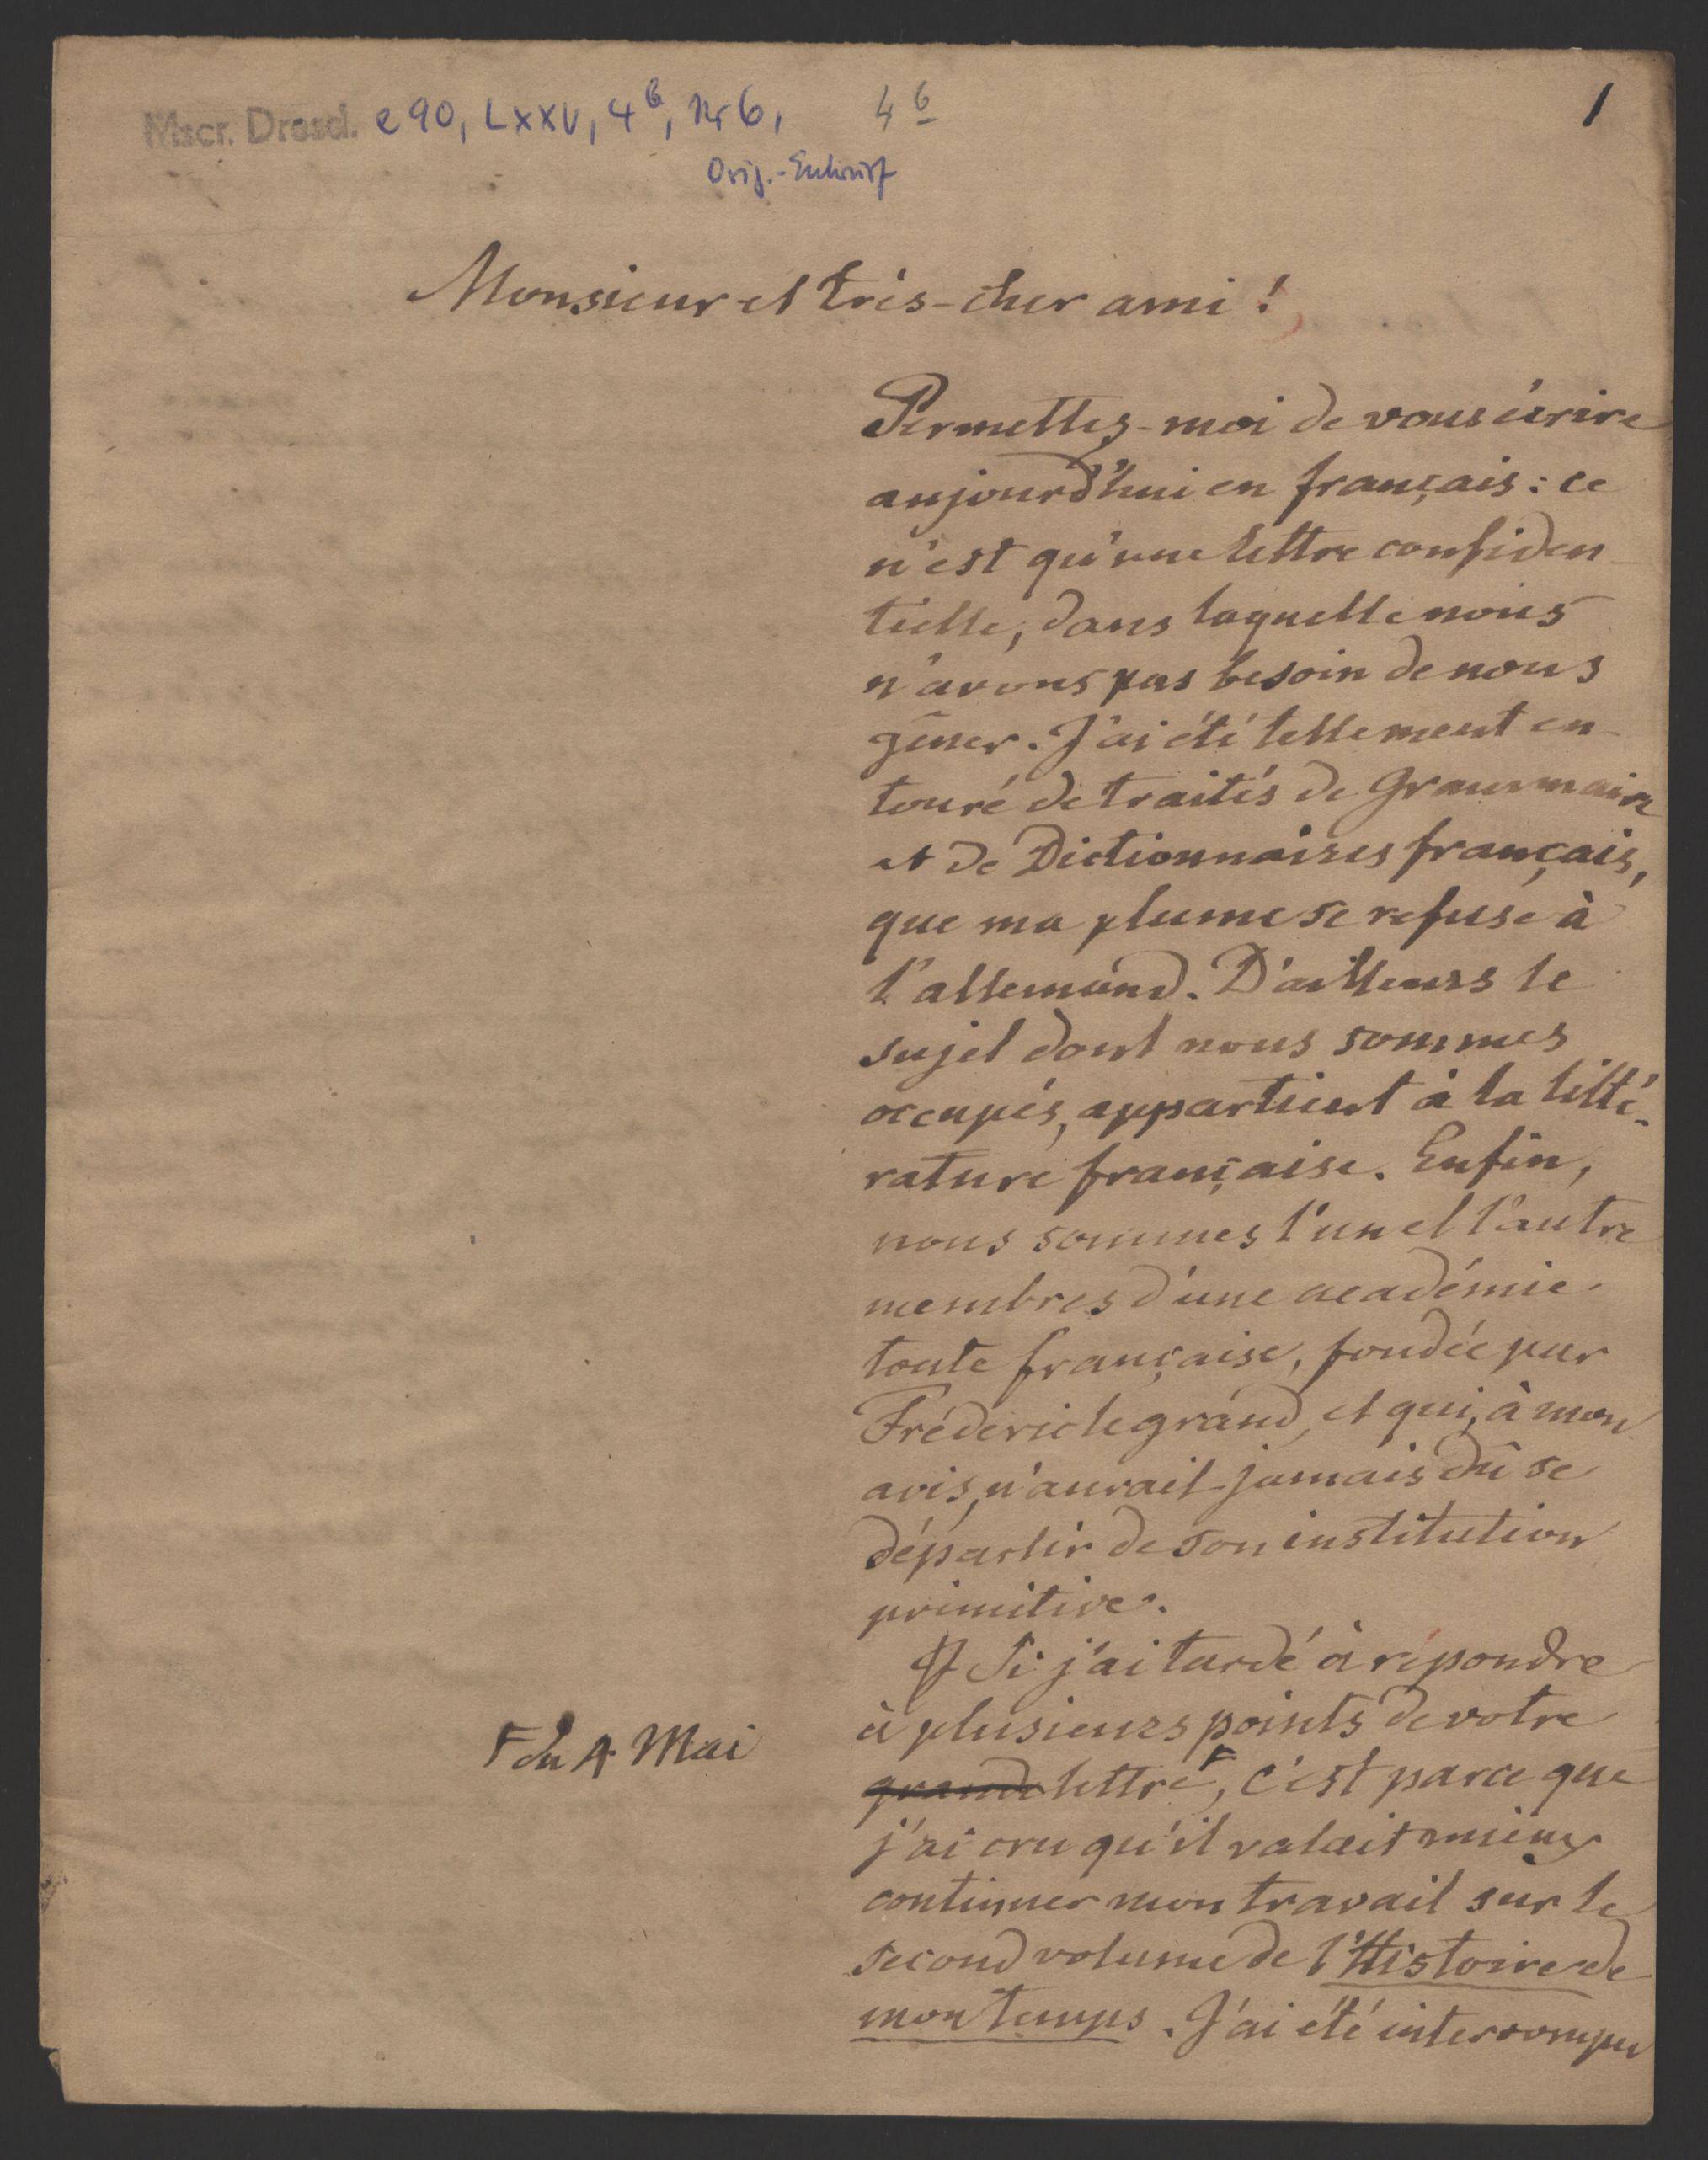 Mscr. Dresd. e 90, LXXV, 4b, Nr 6,
4 b
1
Orig.-Entwurf
Monsieur et très-cher ami !
Permettez-moi de vous écrire
aujourd'hui en français : ce
n'est qu'une lettre confiden-
tielle, dans laquelle nous
n'avons pas besoin de nous
gêner. J'ai été tellement en-
touré de traités de Grammaire
et de Dictionnaires français,
que ma plume se refuse à
l'allemand. D'ailleurs le
sujet dont nous sommes
occupés, appartient à la litté-
rature française. Enfin,
nous sommes l'un et l'autre
membres d'une académie
toute française, fondée par
Fréderic le grand, et qui, à mon
avis, n'aurait jamais dû se
départir de son institution
primitive.
Si j'ai tardé à répondre
à plusieurs points de votre
grande lettre F, c'est parce que
F du 4 Mai
j'ai cru qu'il valait mieux
continuer mon travail sur le
second volume de l'Histoire de
mon temps. J'ai été interrompu